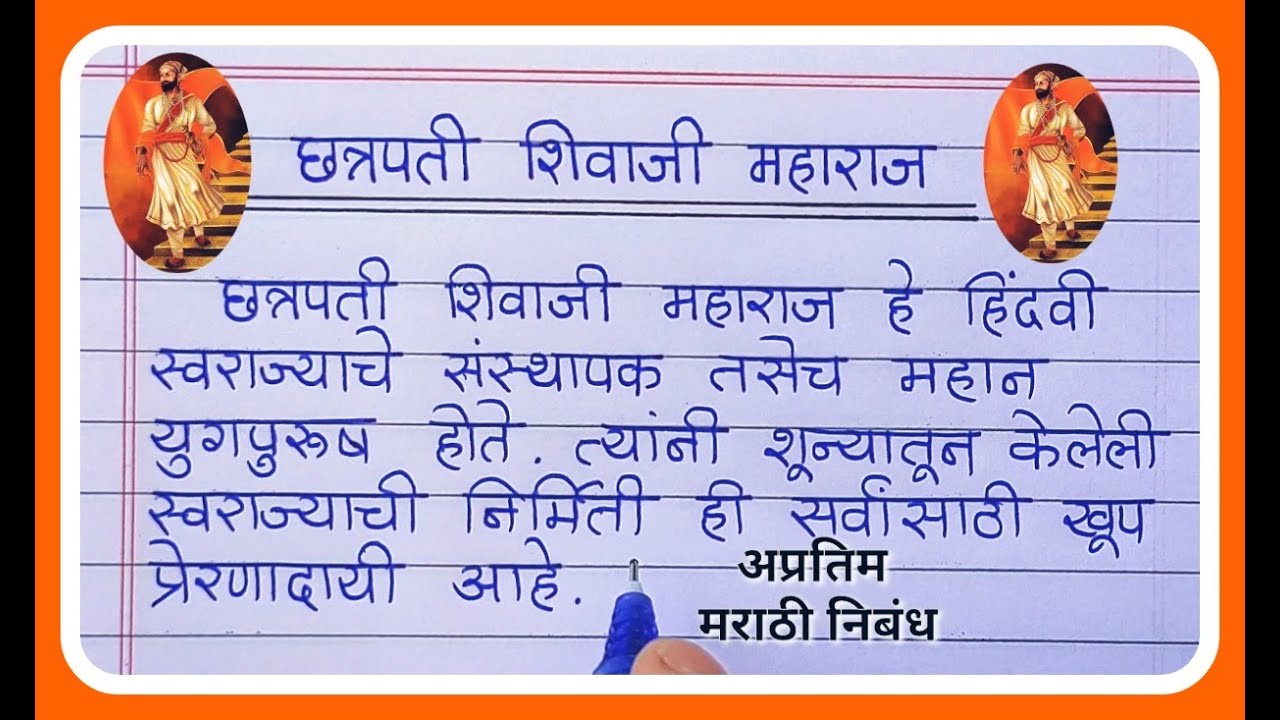 छत्रपती शिवाजी महाराज
छत्रपती शिवाजी महाराज हे हिंदवी
स्वराज्याचे संस्थापक तसेच महान
युगपुरुष होते. त्यांनी शून्यातून केलेली
स्वराज्याची निर्मिती ही सर्वांसाठी खूप
प्रेरणादायी आहे.
अप्रतिम
मराठी निबंध